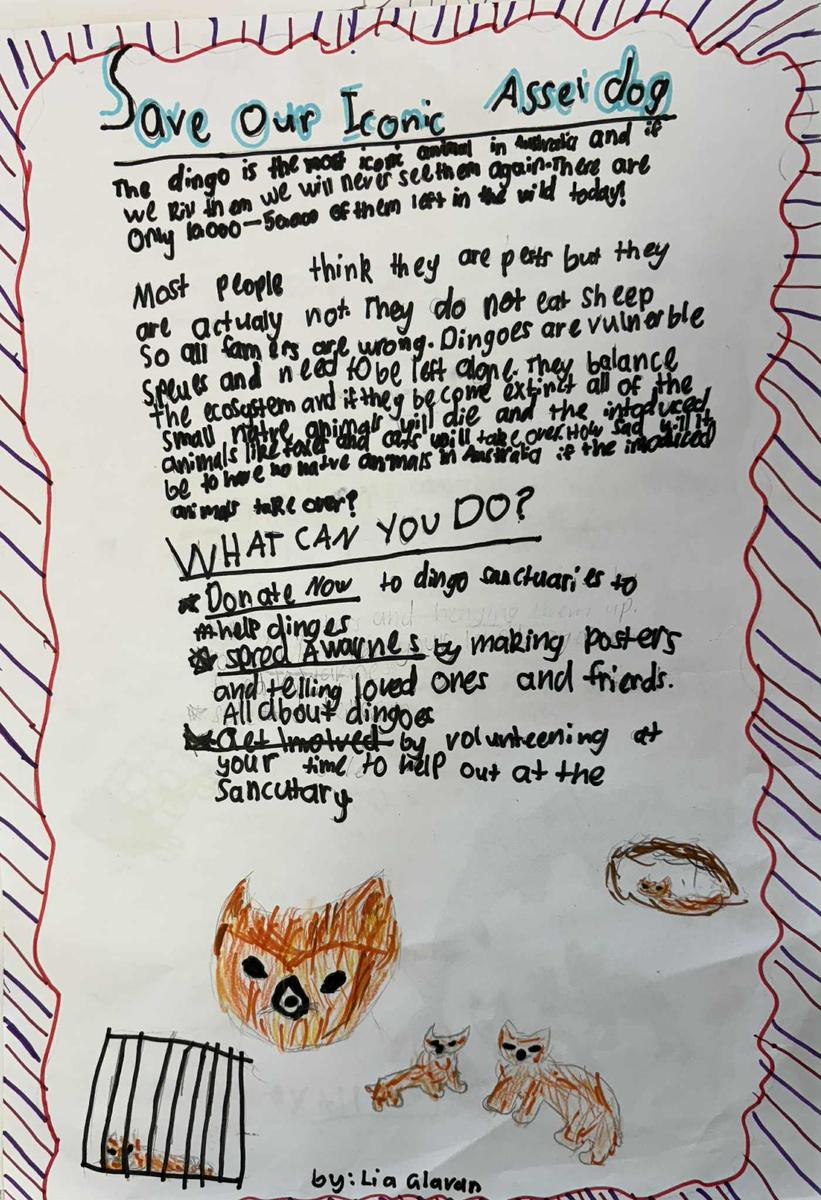 Save Our Iconic Assei dog
The dingo is the most iconic animal in Australia and if
we kill them we will never see them again. There are
Only 10000-50000 of them left in the wild today!
Most people think they are pests but they
are actualy not. They do not eat sheep
So all famers are wrong. Dingoes are vulnerble
Speues and need to be left alone. They balance
the ecosystem and if they become extinct all of the
small native animals will die and the intoduced
animals like foxes and cats will take over. How sad will it
be to have no native animals in Australia if the intoduced
animals take over?
WHAT CAN YOU DO?
Donate Now to dingo sanctuaries to
help dinges
spred Awarnes by making posters
and telling loved ones and friends.
All about dingoes
Get Involved by volunteening at
your time to help out at the
Sancutary
by: Lia Glavan